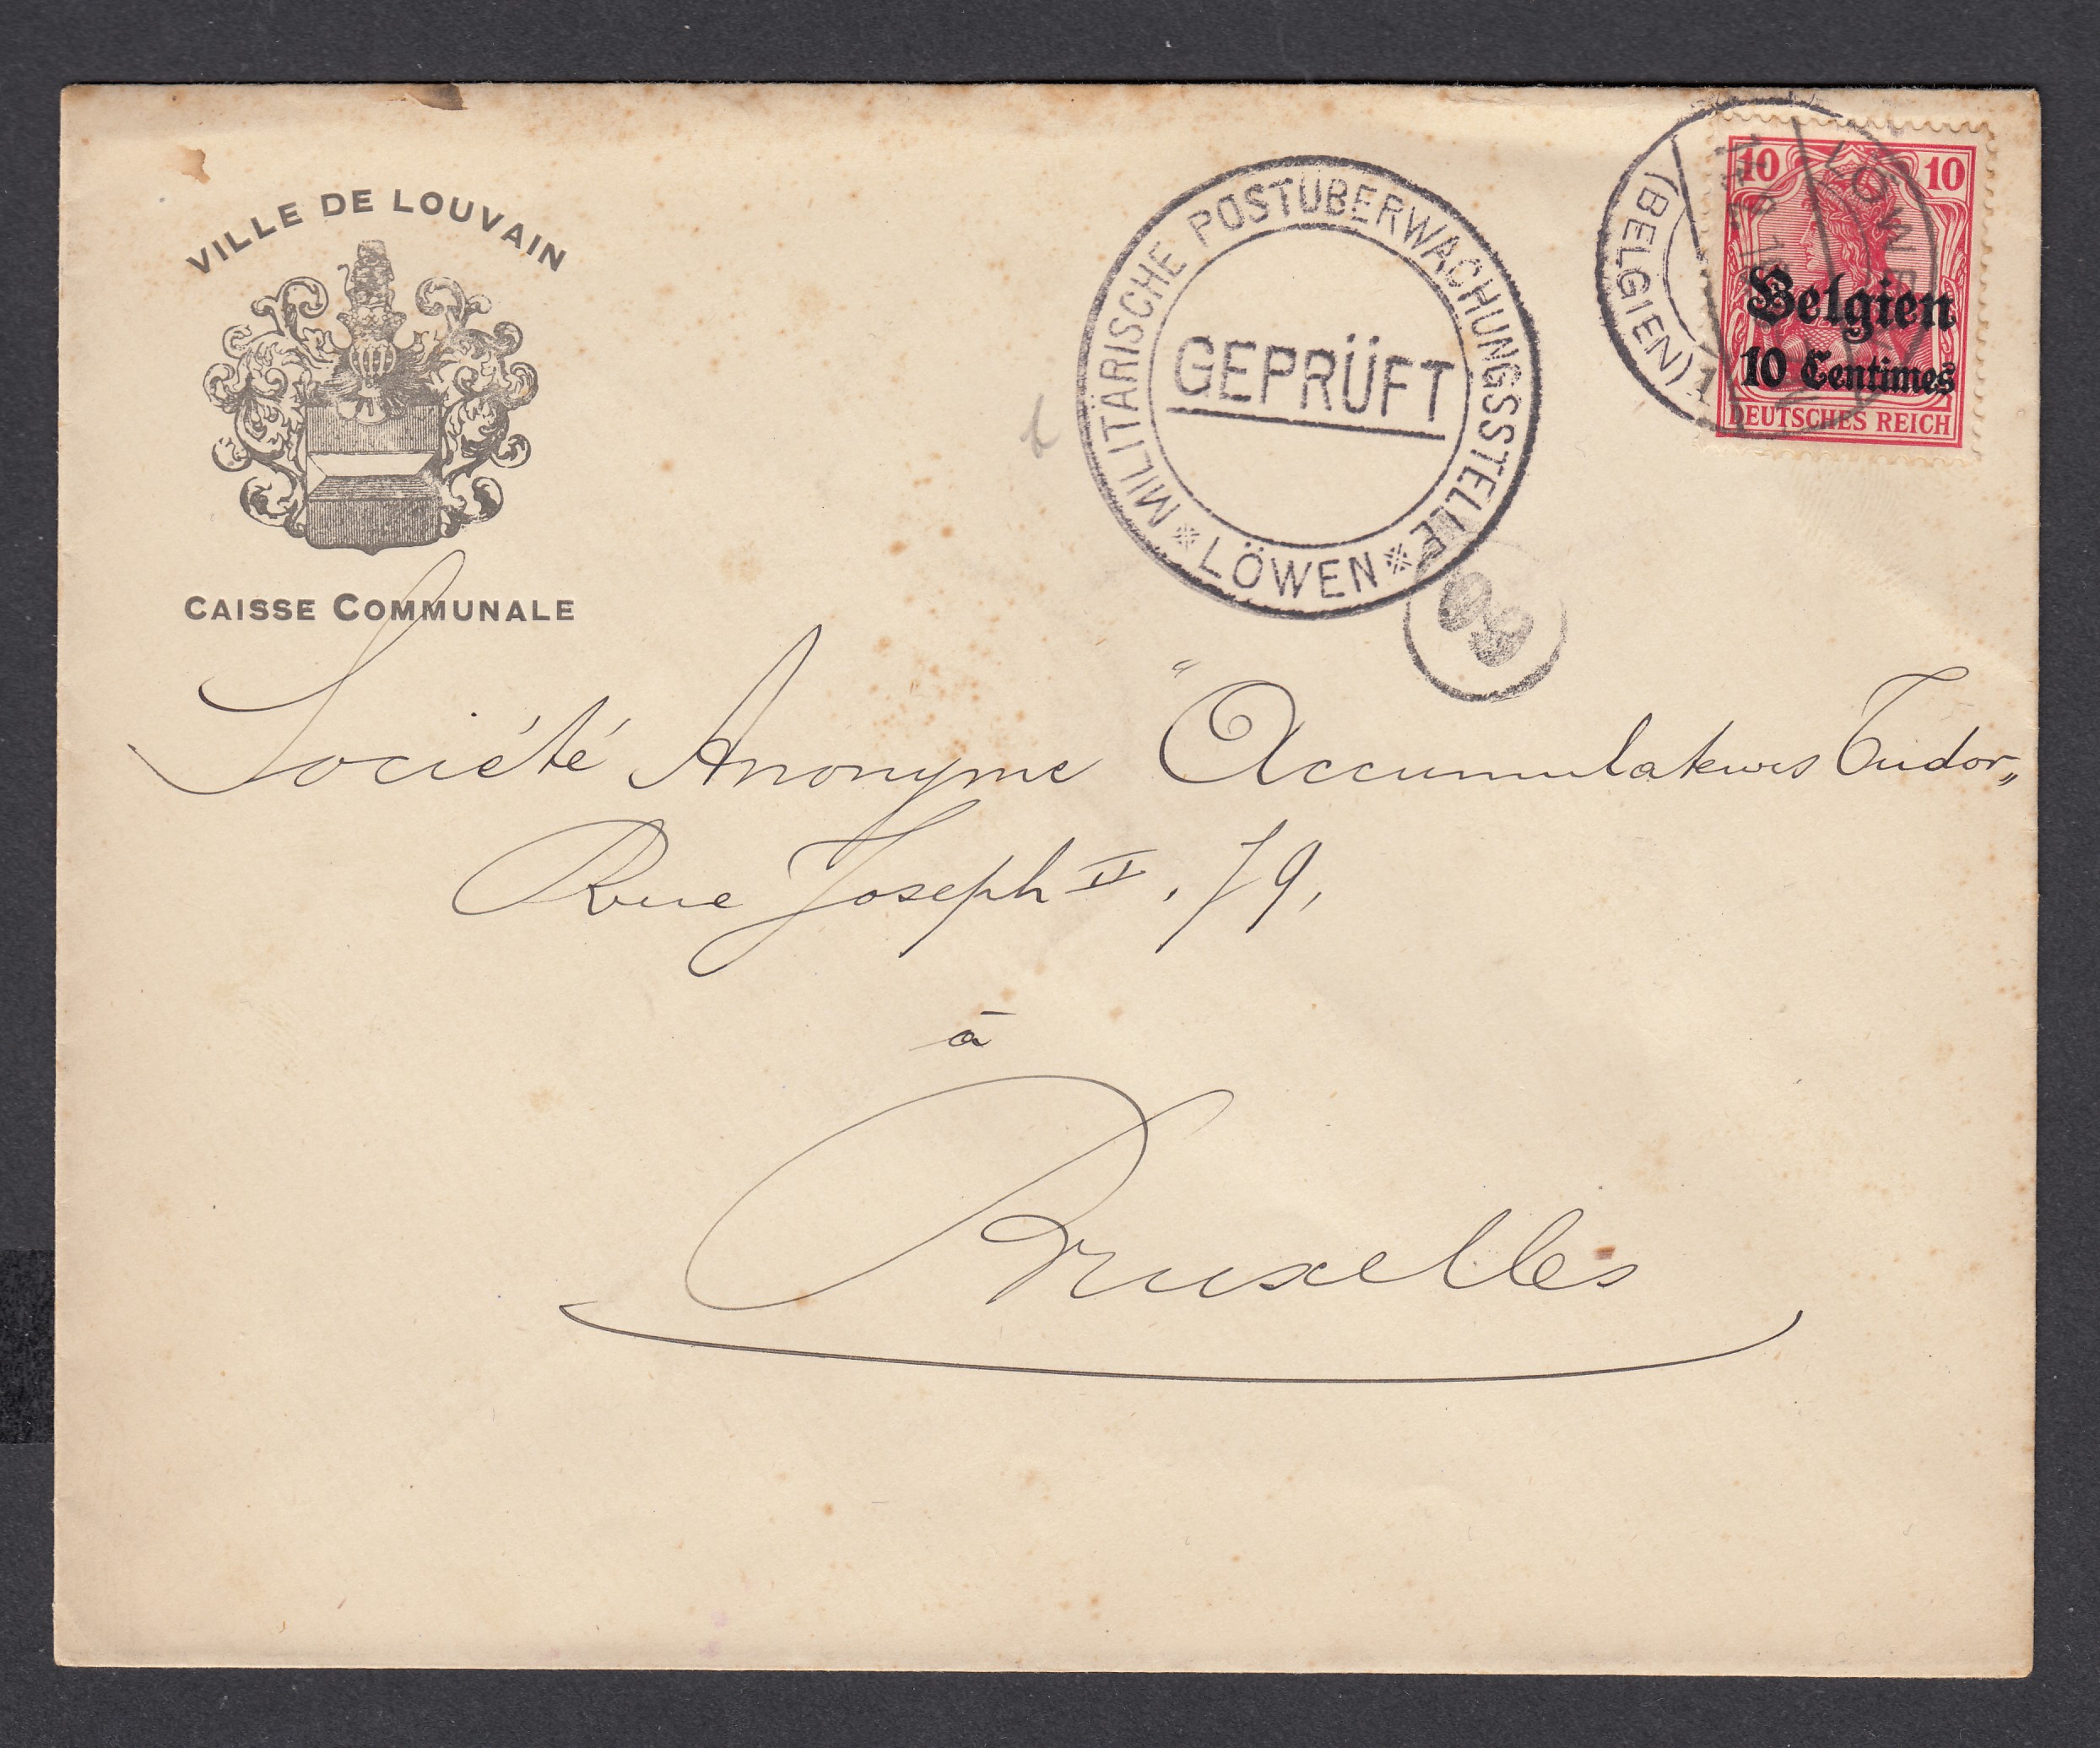 VILLE DE LOUVAIN
CAISSE COMMUNALE
MILITÄRISCHE POSTÜBERWACHUNGSSTELLE
GEPRÜFT
* LÖWEN *
LÖWEN
(BELGIEN) 1
10 10
Belgien
10 Centimes
DEUTSCHES REICH
Société Anonyme "Accumulateurs Tudor„
Rue Joseph II. 79,
à
Bruxelles